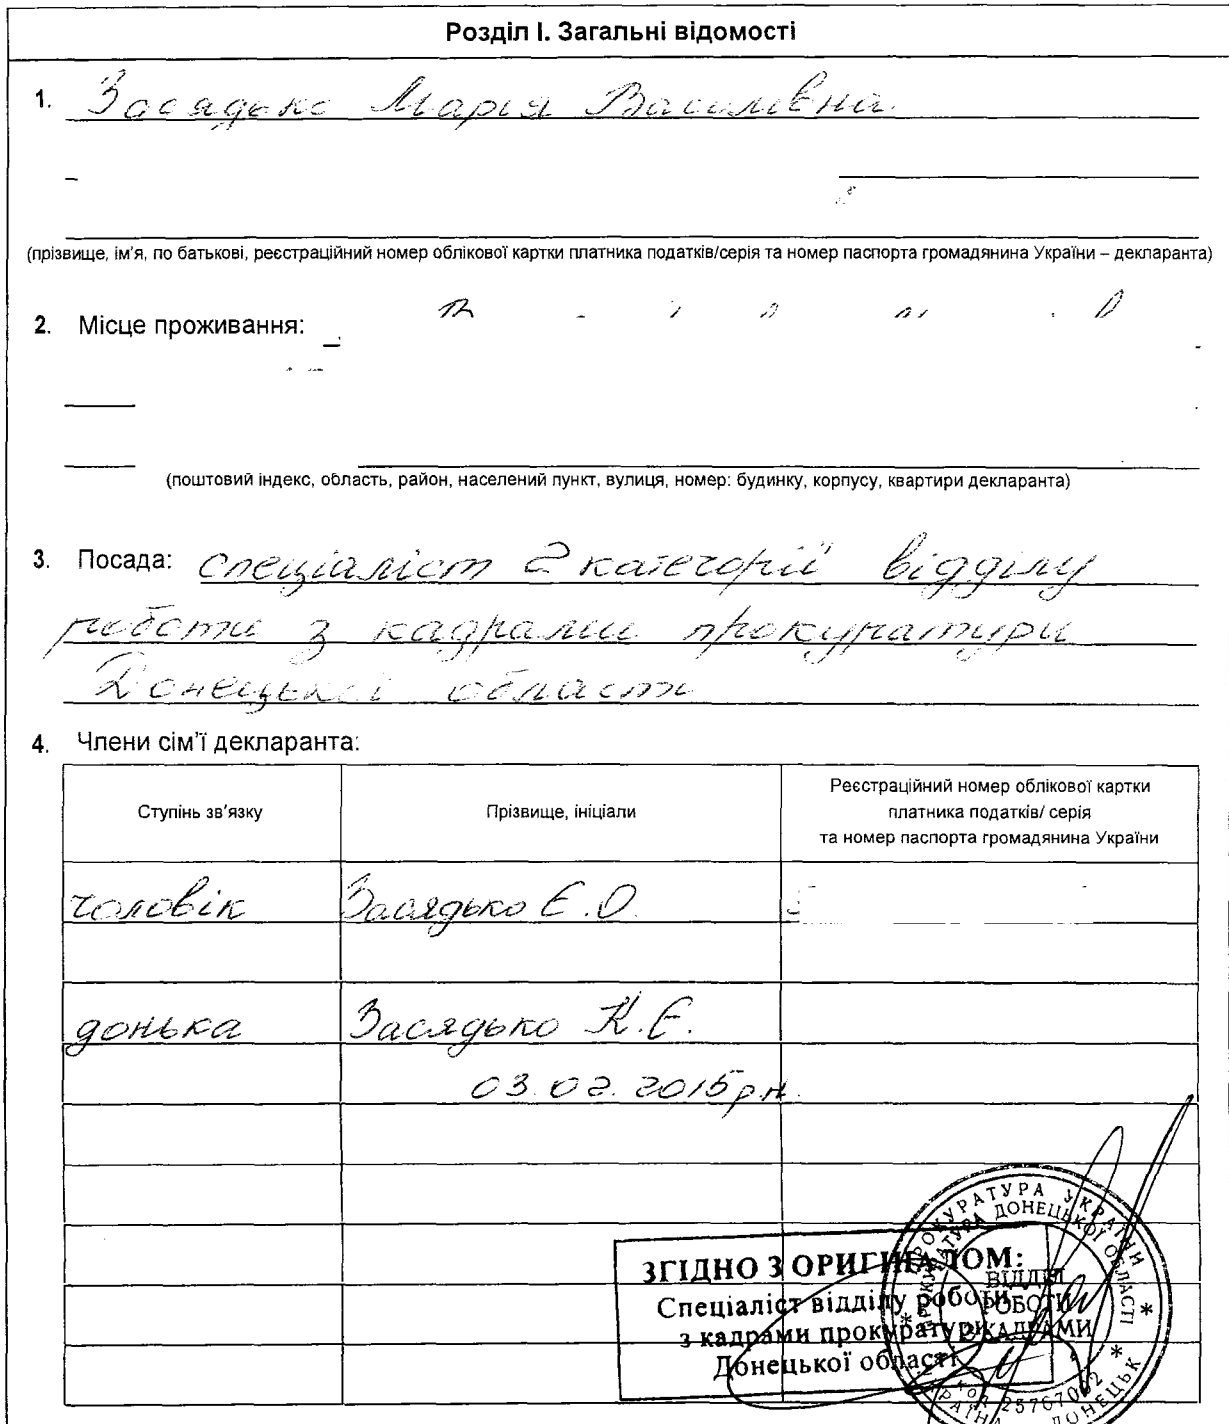 Розділ І. Загальні відомості
1. Засядько Марія Василівна.
(прізвище, ім'я, по батькові, реєстраційний номер облікової картки платника податків/серія та номер паспорта громадянина України – декларанта)
2. Місце проживання:
(поштовий індекс, область, район, населений пункт, вулиця, номер: будинку, корпусу, квартири декларанта)
3. Посада: спеціаліст 2 категорії відділу
роботи з кадрами прокуратури
Донецької області
4. Члени сім'ї декларанта:
Ступінь зв'язку
Прізвище, ініціали
Реєстраційний номер облікової картки
платника податків/ серія
та номер паспорта громадянина України
чоловік Засядько Є.О.
донька Засядько К.Є.
03.02.2015р.н.
ЗГІДНО З ОРИГІНАЛОМ:
Спеціаліст відділу роботи
з кадрами прокуратури
Донецької області
ПРОКУРАТУРА УКРАЇНИ
ПРОКУРАТУРА ДОНЕЦЬКОЇ ОБЛАСТІ
ВІДДІЛ
РОБОТИ
З КАДРАМИ
* УКРАЇНА * ДОНЕЦЬК *